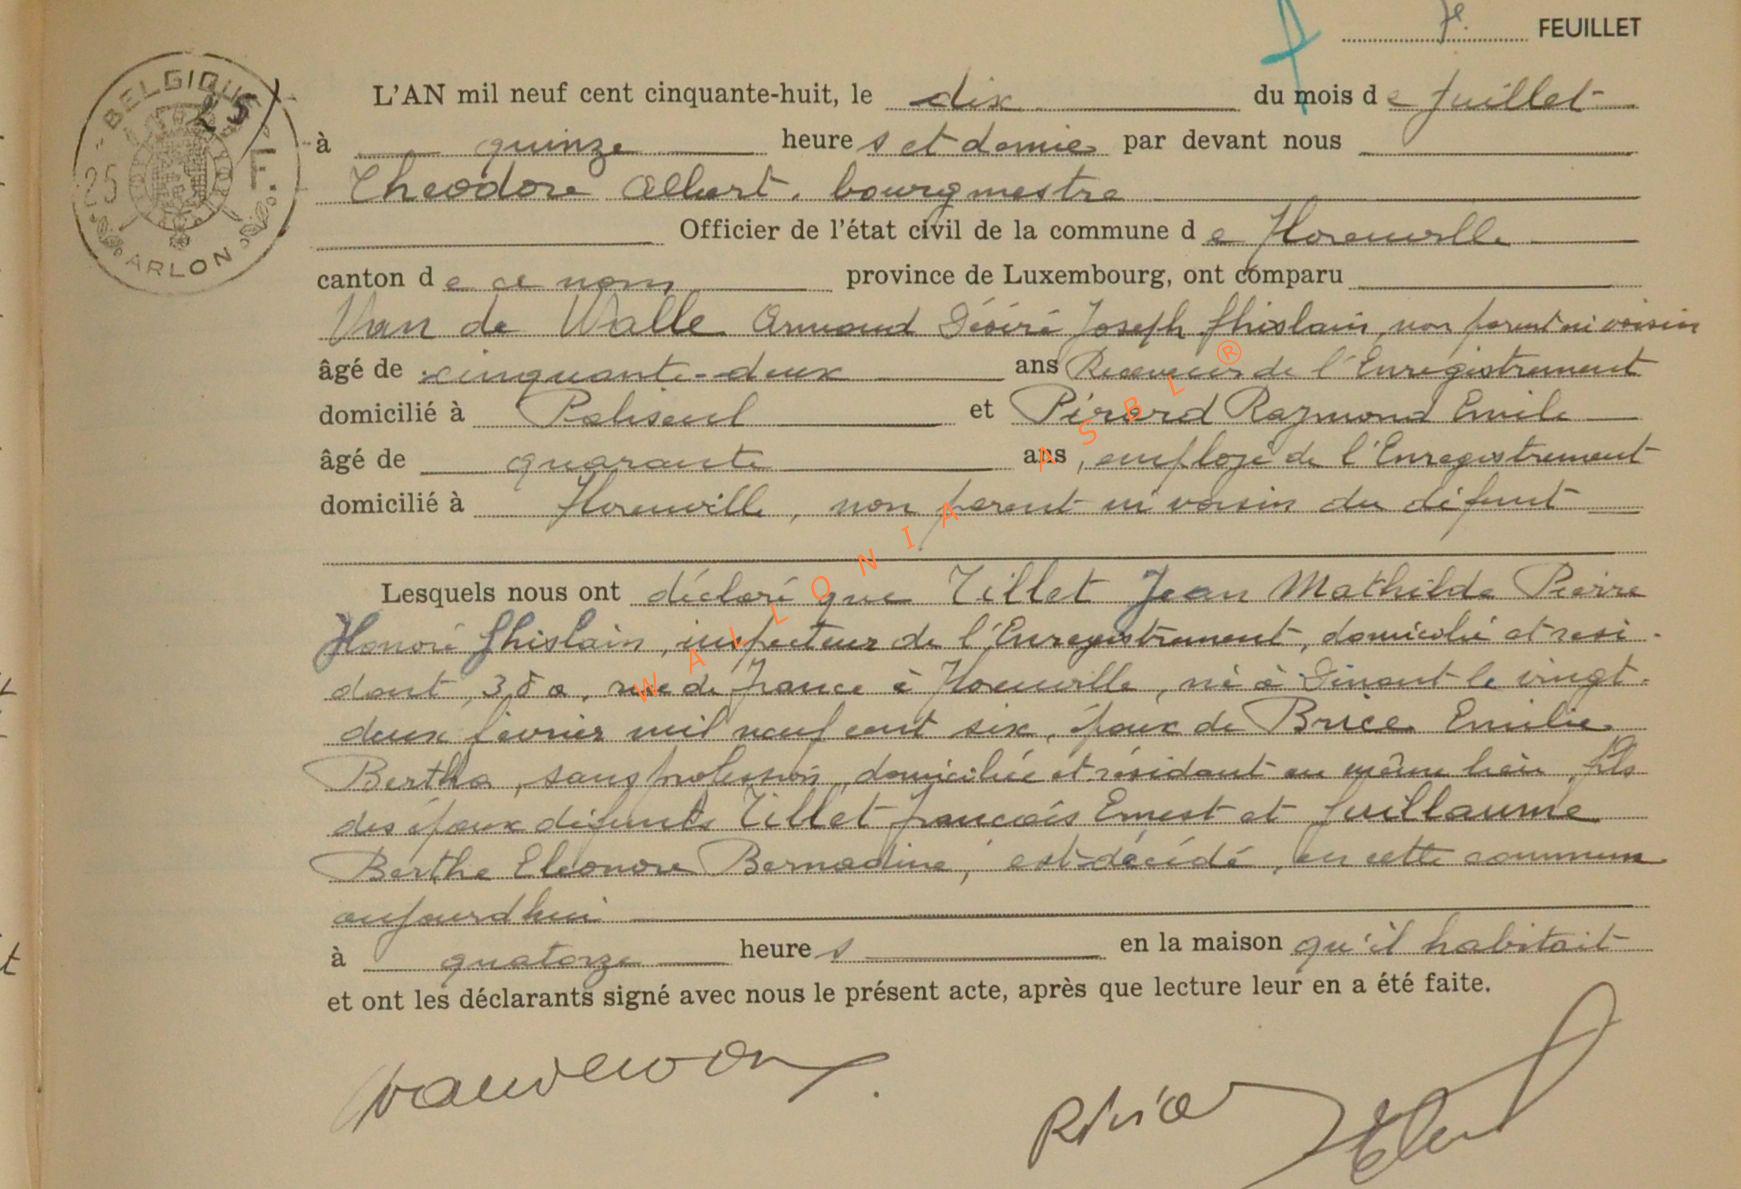 7e. FEUILLET
BELGIQUE
25
25 F.
ARLON
L'AN mil neuf cent cinquante-huit, le dix du mois de Juillet
à quinze heures et demie par devant nous
Théodore Albert, bourgmestre
Officier de l'état civil de la commune de Florenville
canton de ce nom province de Luxembourg, ont comparu
Van de Walle Armand Désiré Joseph Ghislain, non parent ni voisin
âgé de cinquante-deux ans Receveur de l'Enregistrement
domicilié à Paliseul et Pirard Raymond Emile
âgé de quarante ans, employé de l'Enregistrement
domicilié à Florenville, non parent ni voisin du défunt
Lesquels nous ont déclaré que Tillet Jean Mathilde Pierre
Honoré Ghislain, inspecteur de l'Enregistrement, domicilié et rési-
dant, 38a, rue de France à Florenville, né à Dinant le vingt-
deux février mil neuf cent six, époux de Brice Emilie
Bertha, sans profession, domiciliée et résidant au même lieu, fils
des époux défunts Tillet François Ernest et Guillaume
Berthe Eléonore Bernadine, est décédé, en cette commune
aujourd'hui
à quatorze heures en la maison qu'il habitait
et ont les déclarants signé avec nous le présent acte, après que lecture leur en a été faite.
WALLONIA ASBL ®